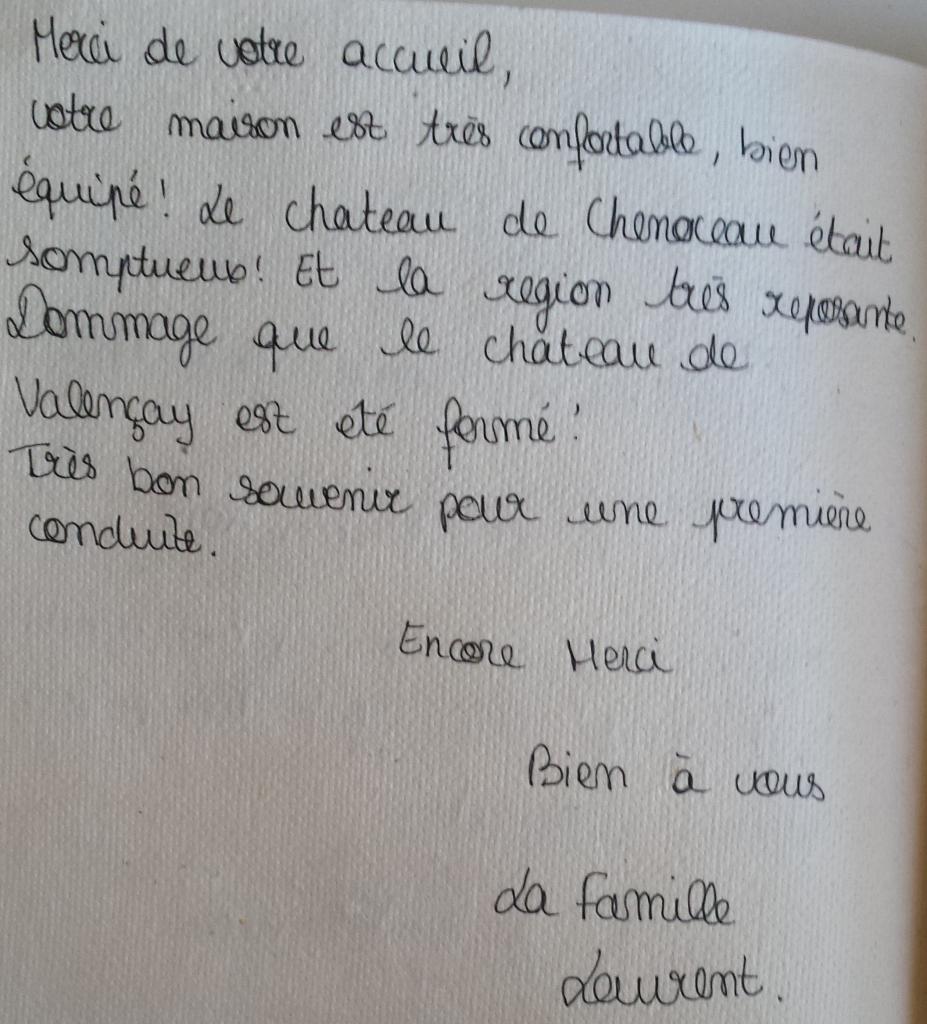 Merci de votre accueil,
votre maison est très confortable, bien
équipé! Le chateau de Chenoceau était
somptueux! Et la region très reposante.
Dommage que le château de
Valençay est été fermé!
Très bon souvenir pour une première
conduite.
Encore Merci
Bien à vous
La famille
Laurent.